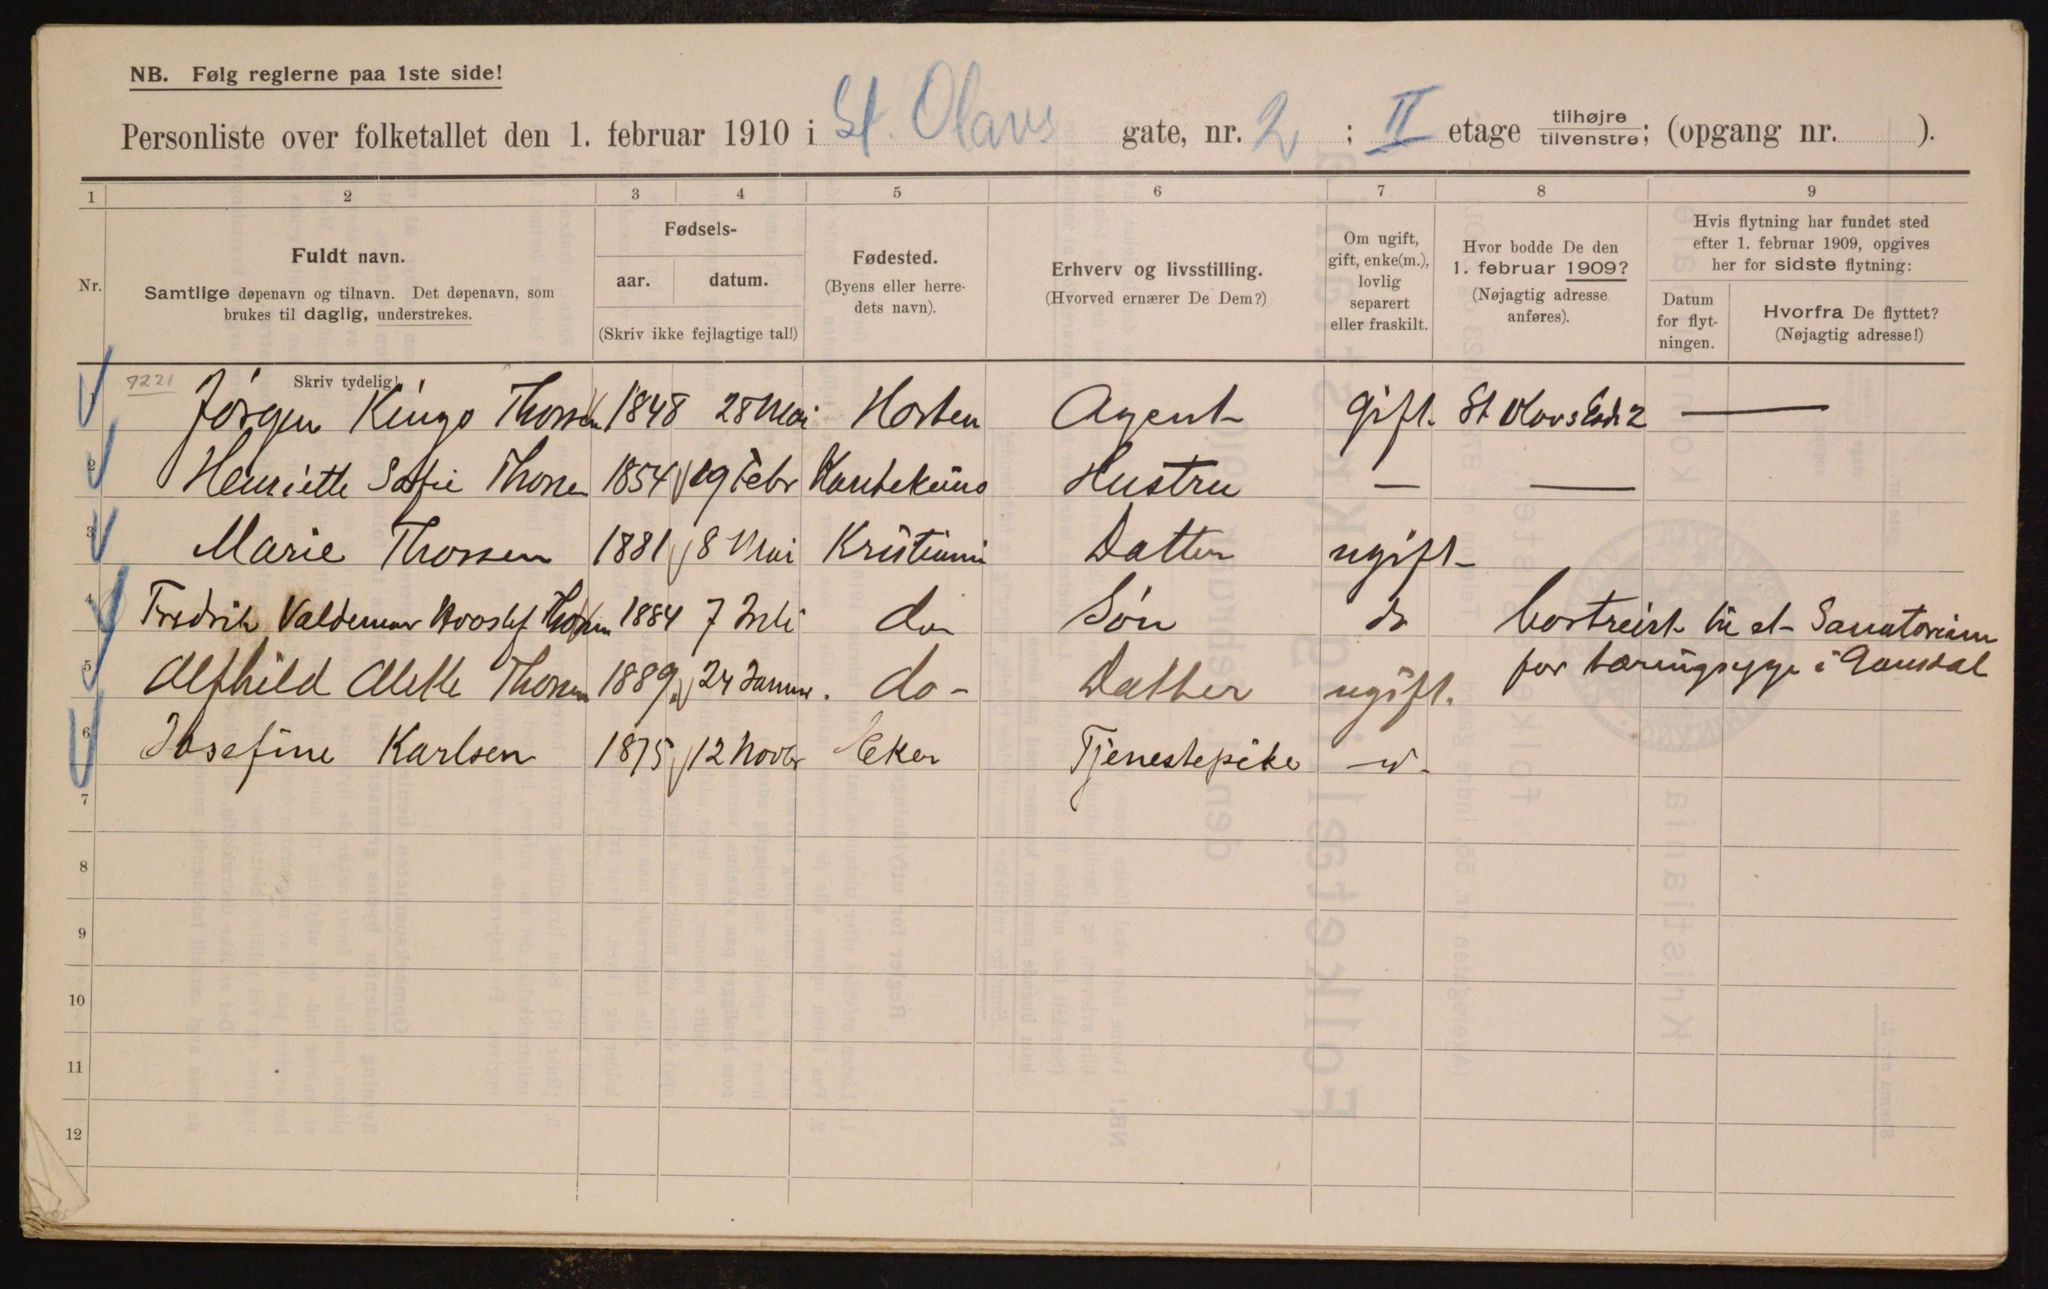 NB. Følg reglerne paa 1ste side!
Personliste over folketallet den 1. februar 1910 i St. Olavs gate, nr. 2 ; II etage tilhøjre tilvenstre; (opgang nr. ).
1 2 3 4 5 6 7 8 9
Nr.
Fuldt navn.
Samtlige døpenavn og tilnavn. Det døpenavn, som
brukes til daglig, understrekes.
Skriv tydelig!
Fødsels-
aar. datum.
(Skriv ikke fejlagtige tal!)
Fødested.
(Byens eller herre-
dets navn).
Erhverv og livsstilling.
(Hvorved ernærer De Dem?)
Om ugift,
gift, enke(m.),
lovlig
separert
eller fraskilt.
Hvor bodde De den
1. februar 1909?
(Nøjagtig adresse
anføres).
Hvis flytning har fundet sted
efter 1. februar 1909, opgives
her for sidste flytning:
Datum
for flyt-
ningen.
Hvorfra De flyttet?
(Nøjagtig adresse!)
9221
Jørgen Kingo Thossen 1848 28 Mai Horten Agent gift. St Olavs Gade 2 —
2 Henriette Sofie Thossen 1854 19 Febr Kautokeino Hustru — —
3 Marie Thossen 1881 8 Mai Kristiani Datter ugift
4 Fredrik Valdemar Thossen 1884 7 Juli do Søn do bortreist til et Sanatorium
for tæringsyge i Gausdal
5 Alfhild Alette Thossen 1889 24 Januar. do- Datter ugift.
6 Josefine Karlsen 1875 12 Novbr Eker Tjenestepike
7
8
9
10
11
12